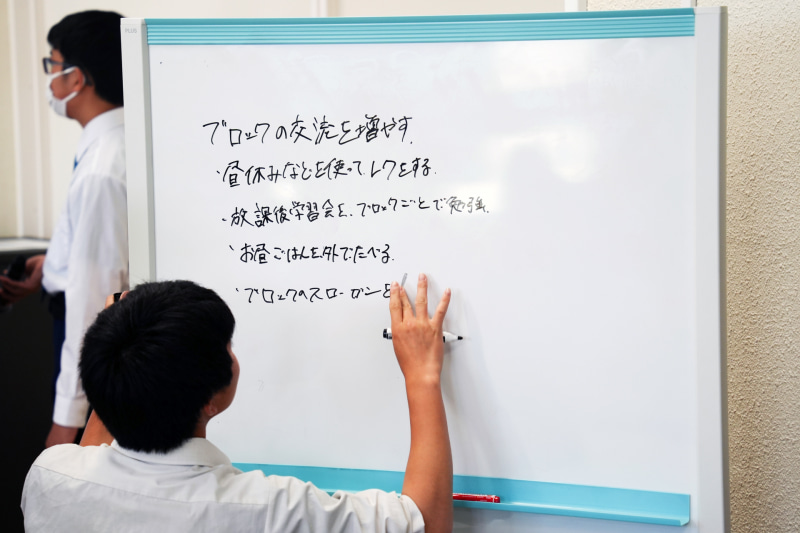 PLUS
ブロックの交流を増やす.
・昼休みなどを使って.レクをする.
・放課後学習会を.ブロックごとで勉強.
・お昼ごはんを外でたべる.
・ブロックのスローガンを